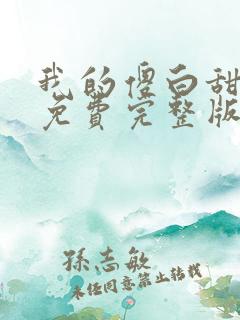 我的傻白甜
免費完整版
孫志敏
未经同意禁止转载